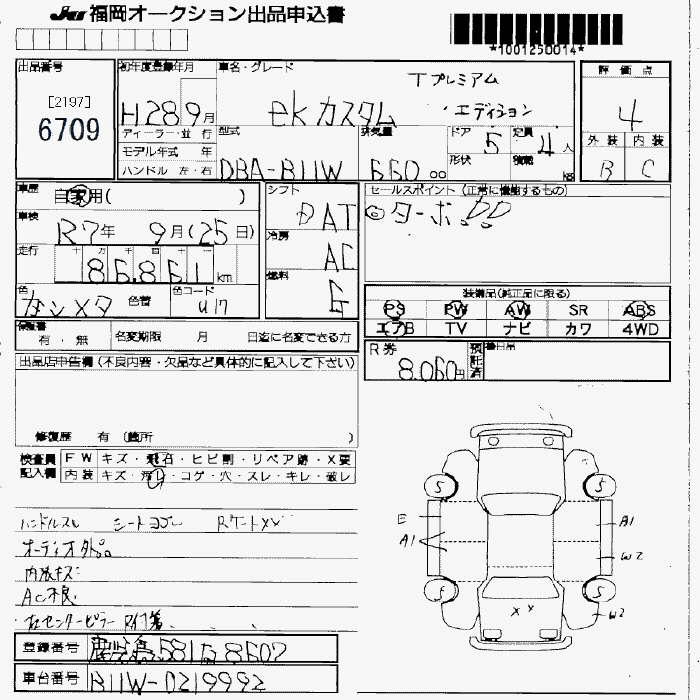 JU 福岡オークション出品申込書
*1001250014*
出品番号
[2197]
6709
初年度登録年月
H28 9月
車名・グレード
Tプレミアム
ekカスタム
エディション
評価点
4
外装 内装
B C
ディーラー・並行
モデル年式 年
ハンドル 左・右
型式
DBA-B11W
排気量
660 cc
ドア 5
形状
定員 4人
積載 kg
車歴
自家用( )
車検
R7年 9月(25日)
走行
十 万 千 百 十 一
86,861 km
色
色替
色コード
U17
シフト
DAT
冷房
AC
燃料
G
セールスポイント (正常に機能するもの)
◎ターボ!!
装備品(純正品に限る)
PS PW AW SR ABS
エアB TV ナビ カワ 4WD
保証書
有・無
名変期限 月 日迄に名変できる方
R券
8,060円
預託済
出品店申告欄(不良内容・欠品など具体的に記入して下さい)
修復歴 有 (箇所 )
検査員記入欄
FW キズ・飛石・ヒビ割・リペア跡・X要
内装 キズ・汚レ・コゲ・穴・スレ・キレ・破レ
ハンドルスレ シートヨゴレ RゲートXX
オーディオ
内張キズ
AC不良
右センターピラー
登録番号
鹿児島 581 8607
車台番号
B11W-0219992
5 5
E
A1 A1
W2
5 5
X X
W2